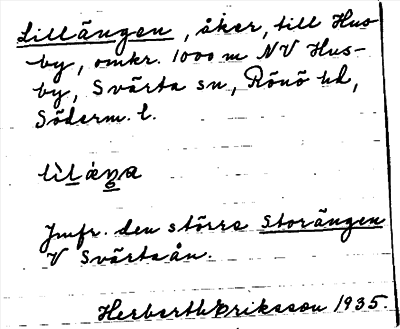 Lillängen, åker, till Hus-
by, omkr. 1000 m NV Hus-
by, Svärta sn, Rönö hd,
Söderm. l.
Jmfr. den större Storängen
V Svärtaån.
Herbarth Eriksson 1935